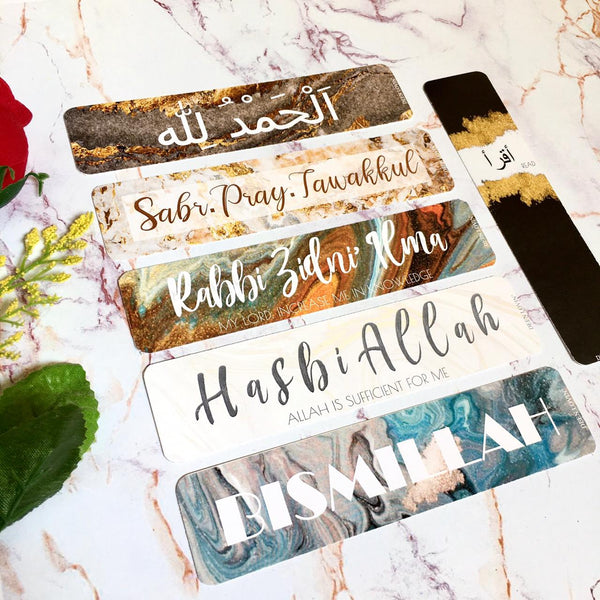 اَلْحَمْدُ لِلّٰه
Sabr.Pray.Tawakkul
Rabbi Zidni Ilma
MY LORD, INCREASE ME IN KNOWLEDGE
HasbiAllah
ALLAH IS SUFFICIENT FOR ME
BISMILLAH
أقرأ
READ